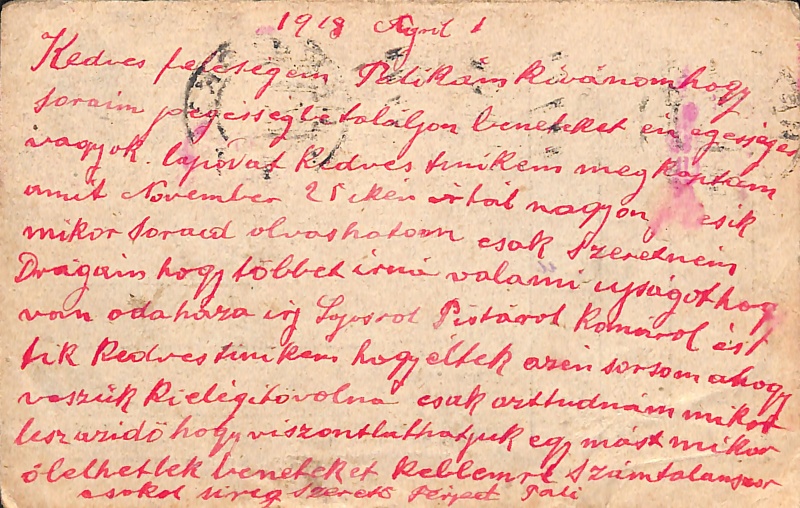 1918 April 1
Kedves feleségem Palikám kivánom hogy
soraim jó egésségbe találjon beneteket én egességes
vagyok. lapodat kedves tinikém meg kaptam
amit November 25 ikén irtál nagyon esik
mikor soraid olvashatom csak szeretném
Drágám hogy többet irná valami ujságot hogy
van odaháza irj Lajosrol Pistárol Komárol és t
tik kedves tinikém hogy éltek azén sorsom ahogy
veszük kielégitö volná csak azt tudnám mikor
lesz az idő hogy viszontláthatjuk egymást mikor
ölelhetlek beneteket keblemre számtalanszor
csokol sirig szerető Pali